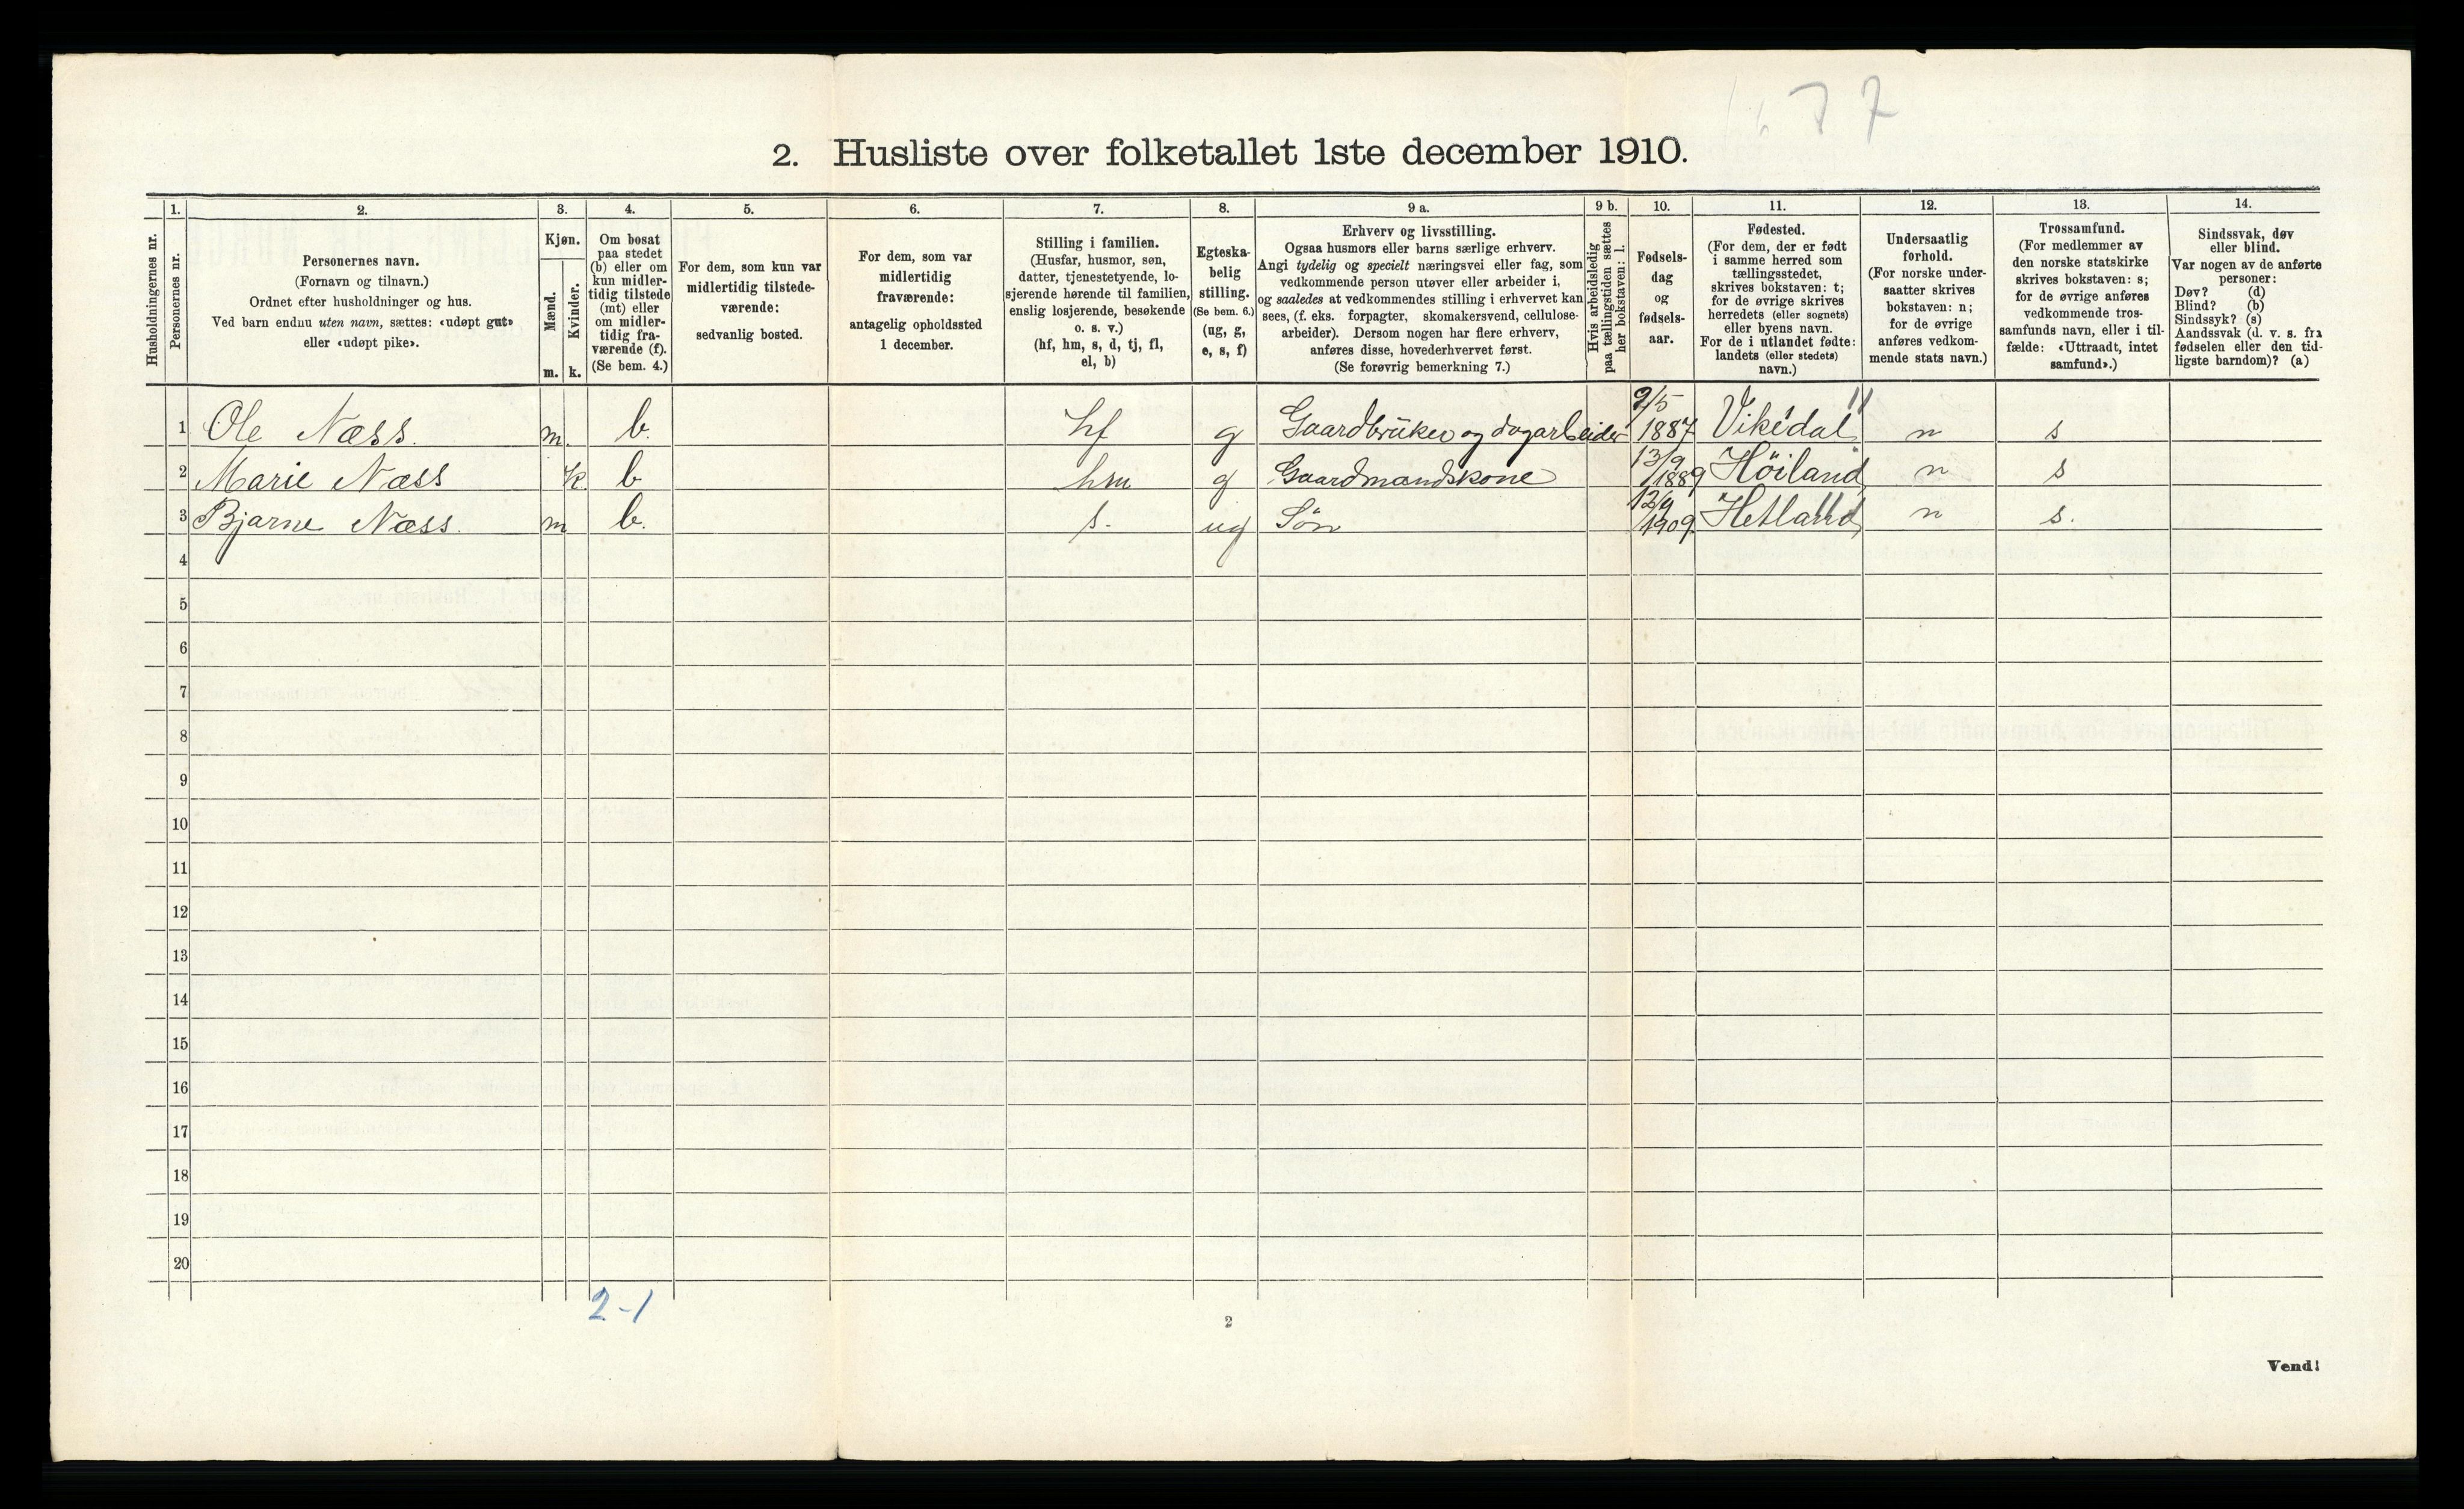 77
2. Husliste over folketallet 1ste december 1910.
Husholdningernes nr.
1.
Personernes nr.
2.
Personernes navn.
(Fornavn og tilnavn.)
Ordnet efter husholdninger og hus.
Ved barn endnu uten navn, sættes: «udøpt gut»
eller «udøpt pike».
3.
Kjøn.
Mænd.
Kvinder.
m. k.
4.
Om bosat
paa stedet
(b) eller om
kun midler-
tidig tilstede
(mt) eller
om midler-
tidig fra-
værende (f).
(Se bem. 4.)
5.
For dem, som kun var
midlertidig tilstede-
værende:
sedvanlig bosted.
6.
For dem, som var
midlertidig
fraværende:
antagelig opholdssted
1 december.
7.
Stilling i familien.
(Husfar, husmor, søn,
datter, tjenestetyende, lo-
sjerende hørende til familien,
enslig losjerende, besøkende
o. s. v.)
(hf, hm, s, d, tj, fl,
el, b)
8.
Egteska-
belig
stilling.
(Se bem. 6.)
(ug, g,
e, s, f)
9 a.
Erhverv og livsstilling.
Ogsaa husmors eller barns særlige erhverv.
Angi tydelig og specielt næringsvei eller fag, som
vedkommende person utøver eller arbeider i,
og saaledes at vedkommendes stilling i erhvervet kan
sees, (f. eks. forpagter, skomakersvend, cellulose-
arbeider). Dersom nogen har flere erhverv,
anføres disse, hovederhvervet først.
(Se forøvrig bemerkning 7.)
9 b.
Hvis arbeidsledig
paa tællingstiden sættes
her bokstaven: l.
10.
Fødsels-
dag
og
fødsels-
aar.
11.
Fødested.
(For dem, der er født
i samme herred som
tællingsstedet,
skrives bokstaven: t;
for de øvrige skrives
herredets (eller sognets)
eller byens navn.
For de i utlandet fødte:
landets (eller stedets)
navn.)
12.
Undersaatlig
forhold.
(For norske under-
saatter skrives
bokstaven: n;
for de øvrige
anføres vedkom-
mende stats navn.)
13.
Trossamfund.
(For medlemmer av
den norske statskirke
skrives bokstaven: s;
for de øvrige anføres
vedkommende tros-
samfunds navn, eller i til-
fælde: «Uttraadt, intet
samfund».)
14.
Sindssvak, døv
eller blind.
Var nogen av de anførte
personer:
Døv? (d)
Blind? (b)
Sindssyk? (s)
Aandssvak (d. v. s. fra
fødselen eller den tid-
ligste barndom)? (a)
1 Ole Næss. m. b. hf g Gaardbruker og dagarbeider 9/5 1887 Vikedal n s
2 Marie Næss k b hm g Gaardmandskone 13/9 1889 Höiland n s
3 Bjarne Næss. m b. s. ug Sön 12/9 1909 Hetland n s.
4
5
6
7
8
9
10
11
12
13
14
15
16
17
18
19
20
2-1
2
Vend!